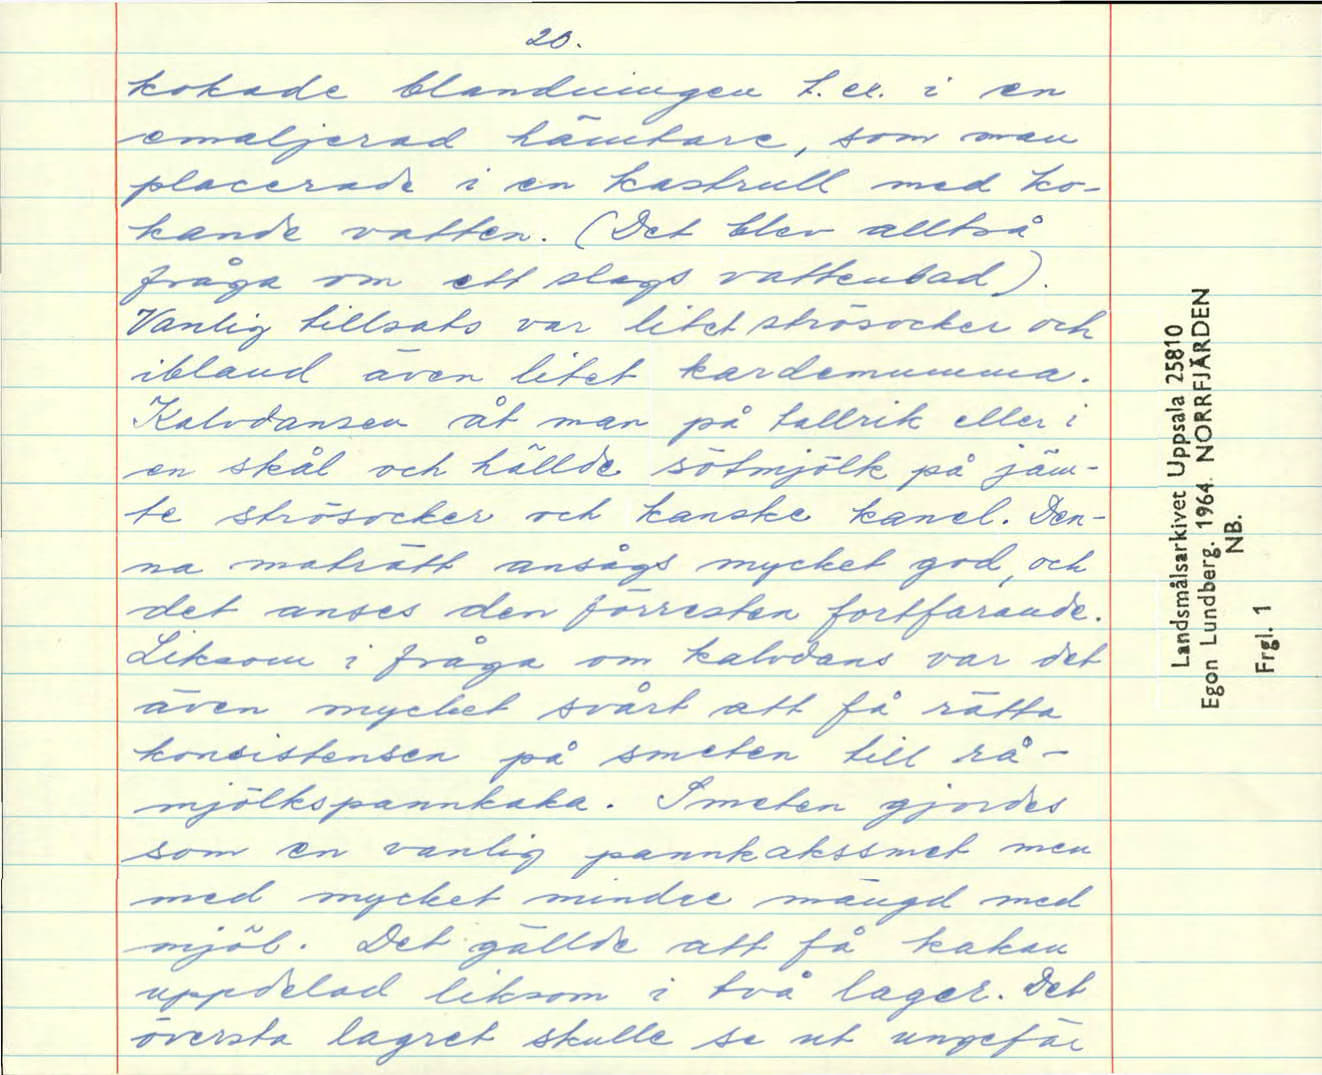 20.
kokade blandningen t. ex. i en
emaljerad hämtare, som man
placerade i en kastrull med ko-
kande vatten. (Det blev alltså
fråga om ett slags vattenbad).
Vanlig tillsats var litet strösocker och
ibland även litet kardemumma.
Kalvdansen åt man på tallrik eller i
en skål och hällde sötmjölk på jäm-
te strösocker och kanske kanel. Den-
na maträtt ansågs mycket god, och
det anses den förresten fortfarande.
Liksom i fråga om kalvdans var det
även mycket svårt att få rätta
konsistensen på smeten till rå-
mjölkspannkaka. Smeten gjordes
som en vanlig pannkakssmet men
med mycket mindre mängd med
mjöl. Det gällde att få kakan
uppdelad liksom i två lager. Det
översta lagret skulle se ut ungefär
Landsmålsarkivet Uppsala 25810
Egon Lundberg. 1964. NORRFJÄRDEN
NB.
Frgl. 1